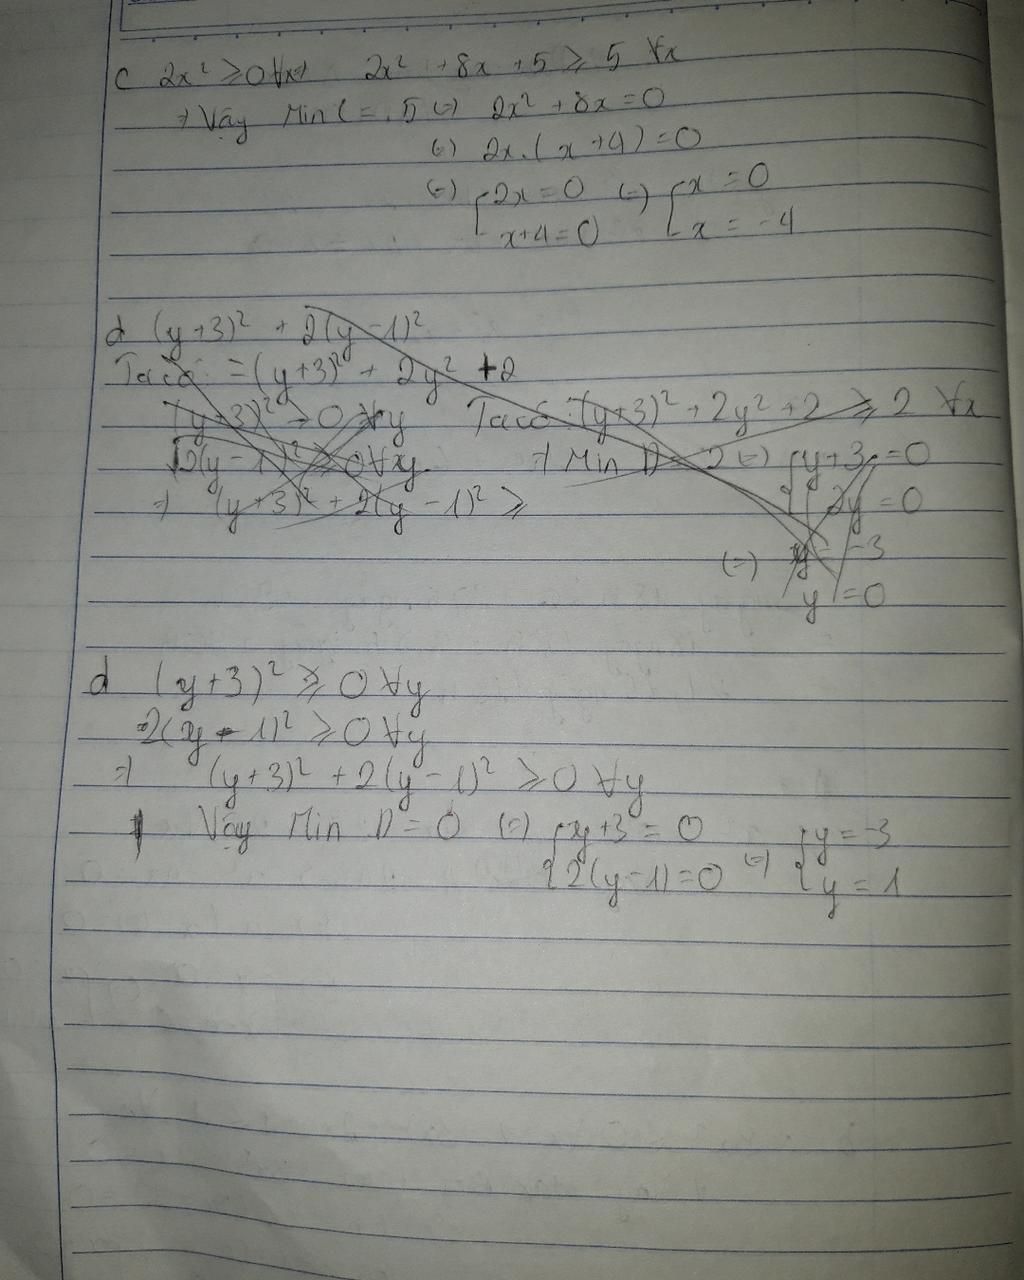 C 2x² ≥ 0 ∀x ⇒ 2x² + 8x + 5 ≥ 5 ∀x
⇒ Vậy Min C = 5 (=) 2x² + 8x = 0
(=) 2x.(x+4) = 0
(=) [2x = 0 (=) [x = 0
x+4 = 0 x = -4
d (y+3)² + 2(y-1)²
Ta có: = (y+3)² + 2y² + 2
(y+3)² ≥ 0 ∀y Ta có: (y+3)² + 2y² + 2 ≥ 2 ∀x
2(y-1)² ≥ 0 ∀y ⇒ Min D = 2 (=) {y+3 = 0
⇒ (y+3)² + 2(y-1)² ≥ 2y = 0
(=) y = -3
y = 0
d (y+3)² ≥ 0 ∀y
2(y-1)² ≥ 0 ∀y
⇒ (y+3)² + 2(y-1)² ≥ 0 ∀y
Vậy Min D = 0 (=) {y+3 = 0 {y = -3
2(y-1) = 0 (=) y = 1